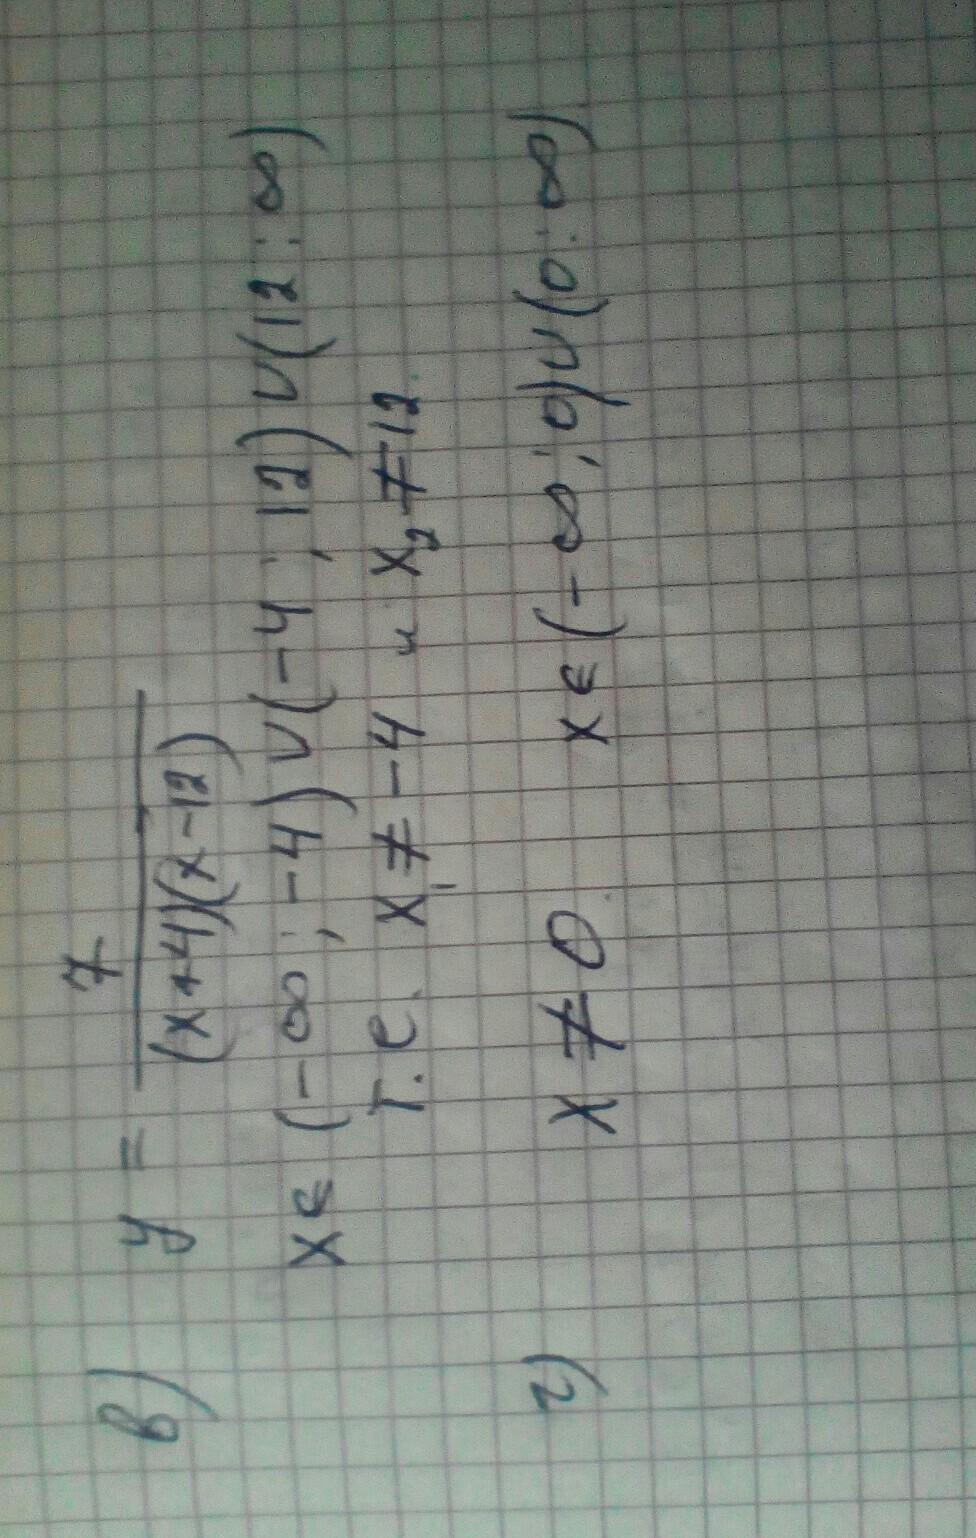 в) y = 7/((x+4)(x-12))
x∈ (-∞; -4)∪(-4; 12)∪(12; ∞)
т.е. x₁ ≠ -4 и x₂ ≠ 12.
г) x ≠ 0 x∈(-∞; 0)∪(0; ∞)